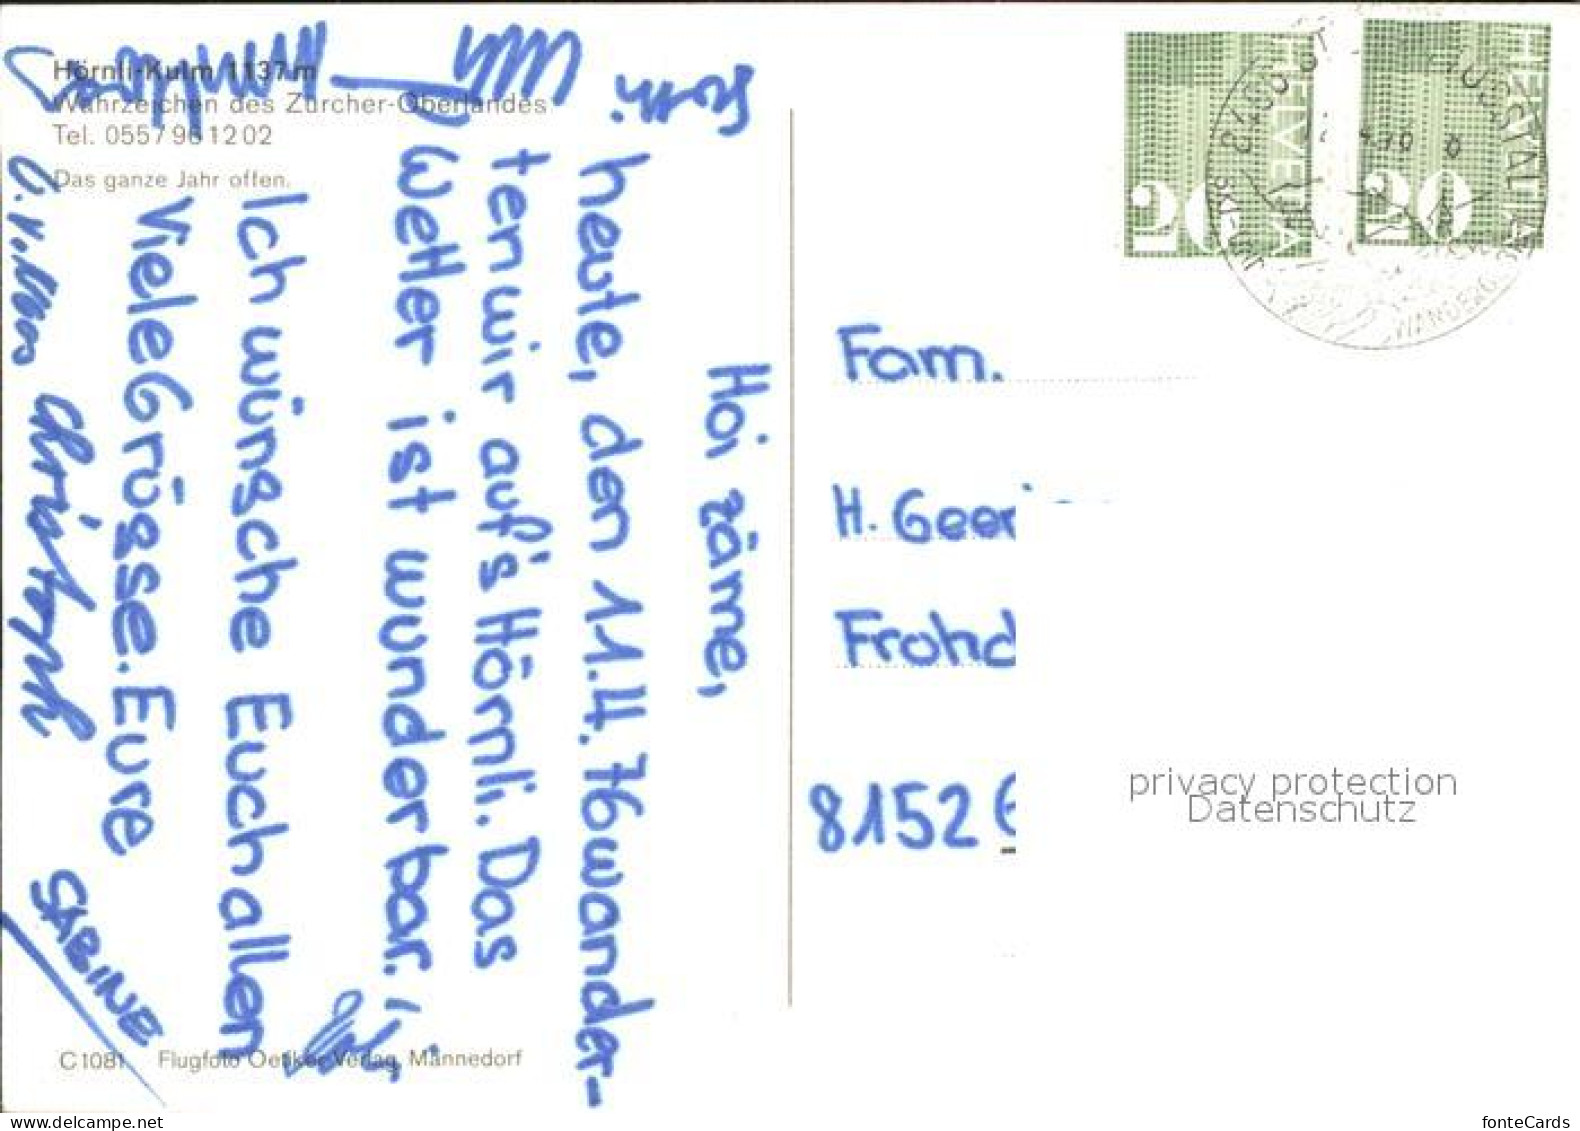 Hörnli-Kulm 1137m
Wahrzeichen des Zürcher-Oberlandes
Tel. 055/961202
Das ganze Jahr offen.
Hoi zäme,
heute, den 11.4.76 wander-
ten wir auf's Hörnli. Das
Wetter ist wunderbar.
Ich wünsche Euch allen
Viele Grüsse. Eure
Christoph
SABINE
C1081 Flugfoto Oetiker Verlag, Männedorf
HELVETIA
20
HELVETIA
20
Fam.
H. Geer
Frohd
8152 G
privacy protection
Datenschutz
www.delcampe.net
fonteCards